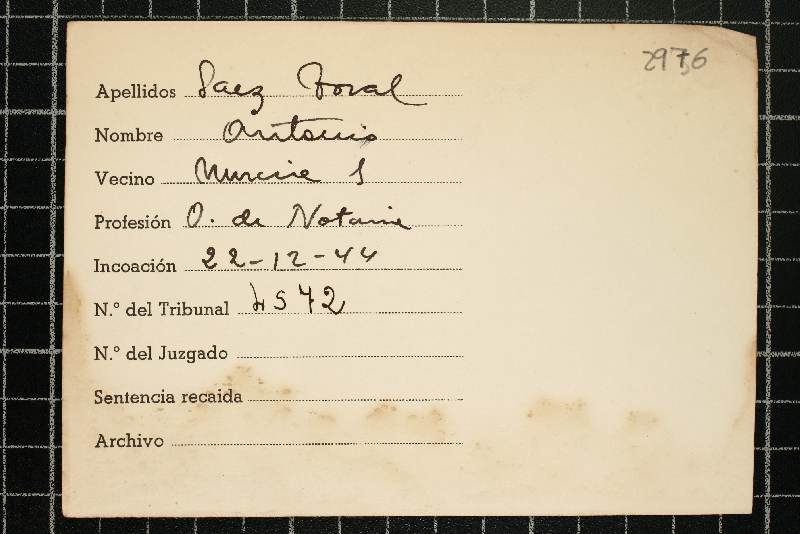 2976
Apellidos Saez Toral
Nombre Antonio
Vecino Murcia S
Profesión O. de Notaria
Incoación 22-12-44
N.° del Tribunal 4572
N.° del Juzgado
Sentencia recaida
Archivo